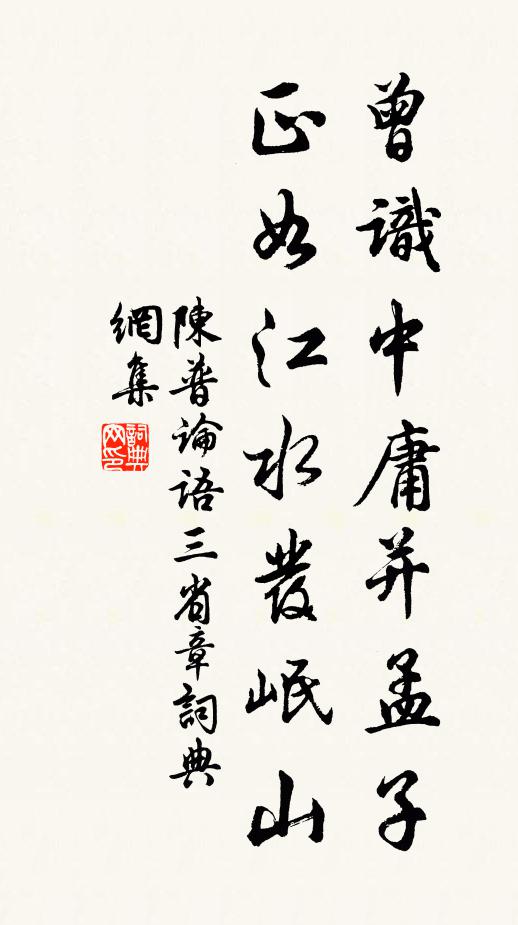 曾識中庸并孟子
正如江水發岷山
陳普論語三省章詞典
網集
詞典
网印